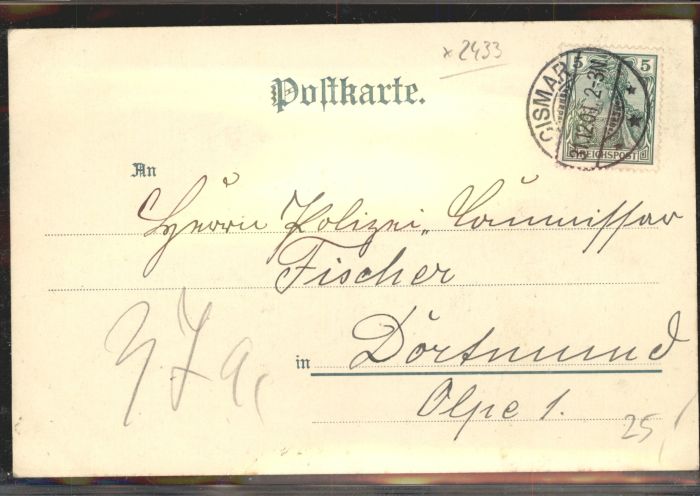 x 2433
Postkarte.
5 5
REICHSPOST
CISMAR
31.12.01. 2-3N
An
Herrn Polizei„Commissar
Fischer
in Dortmund
Olpe 1.
25,